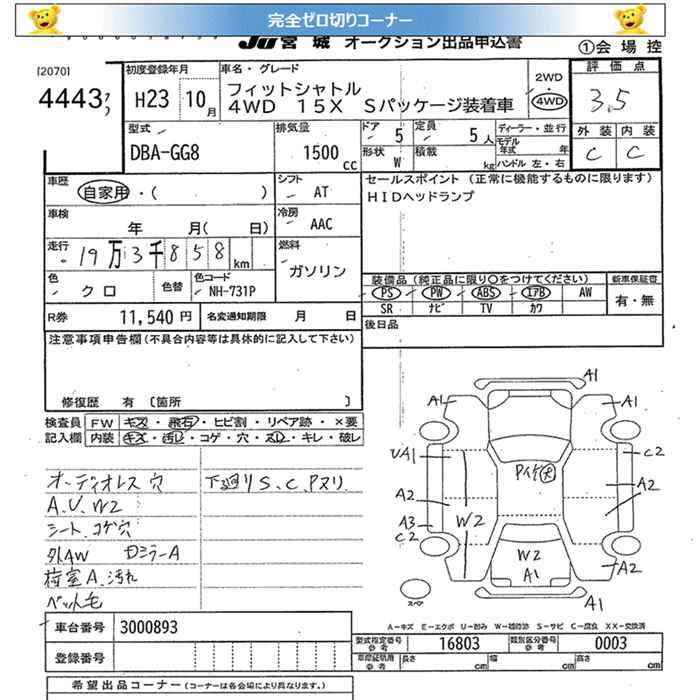 完全ゼロ切りコーナー
JU宮城 オークション出品申込書
①会場控
[2070]
4443
初度登録年月
H23 10月
車名・グレード
フィットシャトル
4WD 15X Sパッケージ装着車
2WD
4WD
評価点
3.5
外装 内装
C C
型式
DBA-GG8
排気量
1500cc
ドア 5
形状 W
定員 5人
積載 kg
ディーラー・並行
モデル年式 年
ハンドル 左・右
車歴
自家用・( )
シフト
AT
車検
年 月(日)
冷房
AAC
走行
19万3千858km
燃料
ガソリン
色
クロ
色替
色コード
NH-731P
R券 11,540円
名変通知期限 月 日
セールスポイント (正常に機能するものに限ります)
HIDヘッドランプ
装備品(純正品に限り○をつけてください)
新車保証書
PS PW ABS エアB AW
SR ナビ TV カワ
有・無
後日品
注意事項申告欄(不具合内容等は具体的に記入して下さい)
修復歴 有 [箇所 ]
検査員記入欄
FW キズ・飛石・ヒビ割・リペア跡・×要
内装 キズ・汚レ・コゲ・穴・スレ・キレ・破レ
オーディオレス穴
A.V.W2
シート.コゲ穴
外AW Dミラ-A
荷室A.汚れ
ペット毛
下廻りS.C.Pヌリ.
A1
A1
A1
UA1
C2
Pイゲ大
A2
A2
A3
C2
W2
W2
A1
A2
A1
スペア
A-キズ E-エクボ U-凹み W-補修跡 S-サビ C-腐食 XX-交換済
車台番号 3000893
登録番号
型式指定番号 参考 16803
類別区分番号 参考 0003
車庫証明用 参考 長さ cm 幅 cm 高さ cm
希望出品コーナー (コーナーは各会場により異なります。)